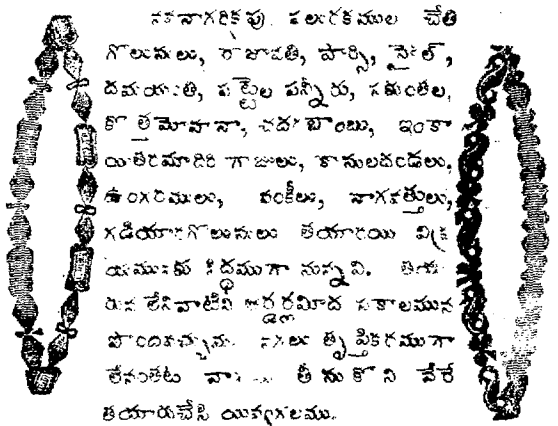 నవనాగరికపు పలురకముల చేతి
గొలుసులు, రాజావతి, పార్సి, నైల్,
దమయంతి, పట్టెల పన్నీరు, శకుంతల,
కొత్తమోహనా, చదరబాంబు, ఇంకా
యితరమాదిరి గాజులు, కాసులదండలు,
ఉంగరములు, వంకీలు, నాగవత్తులు,
గడియారగొలుసులు తయారయి విక్ర
యమునకు సిద్ధముగా నున్నవి. తయా
రున లేనివాటిని ఆర్డర్లమీద సకాలమున
పొందవచ్చును. నగలు తృప్తికరముగా
లేనంతట తీసుకొని వేరే
తయారుచేసి యివ్వగలము.